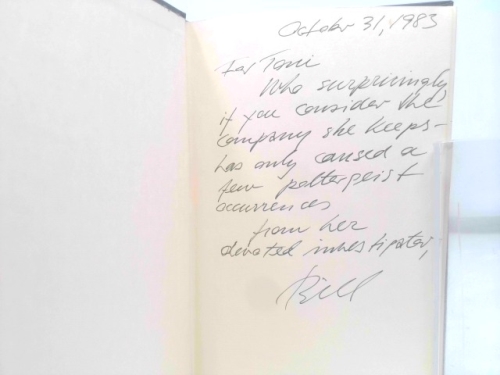 October 31, 1983
For Toni
Who surprisingly,
if you consider the
company she keeps-
has only caused a
few poltergeist
occurrences
from her
devoted investigator,
Bill